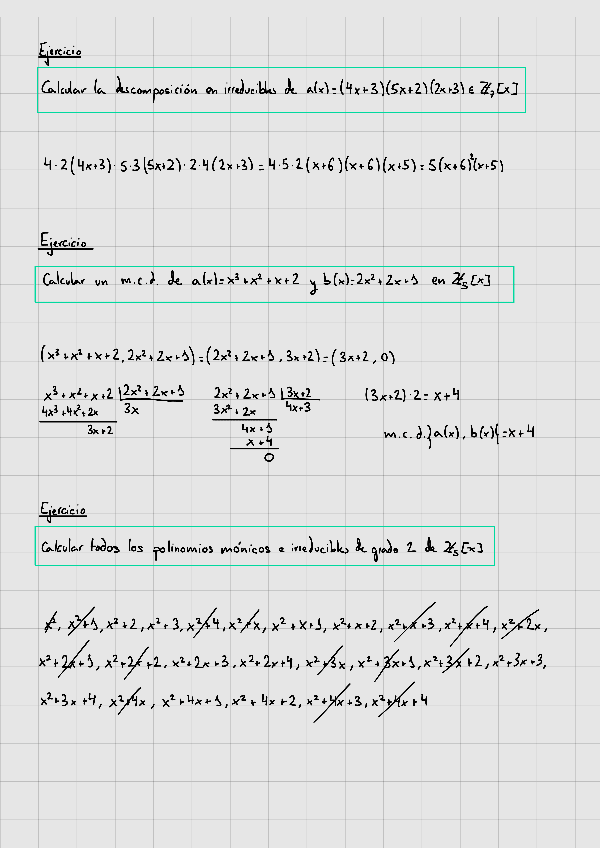 Ejercicio
Calcular la descomposición en irreducibles de a(x)=(4x+3)(5x+2)(2x+3) ∈ ℤ₇[x]
4·2(4x+3)·5·3(5x+2)·2·4(2x+3)=4·5·2(x+6)(x+6)(x+5)=5(x+6)²(x+5)
Ejercicio
Calcular un m.c.d. de a(x)=x³+x²+x+2 y b(x)=2x²+2x+1 en ℤ₅[x]
(x³+x²+x+2, 2x²+2x+1)=(2x²+2x+1, 3x+2)=(3x+2, 0)
x³+x²+x+2 |2x²+2x+1 2x²+2x+1 |3x+2 (3x+2)·2=x+4
4x³+4x²+2x 3x 3x²+2x 4x+3
3x+2 4x+1 m.c.d.}a(x), b(x){=x+4
x+4
0
Ejercicio
Calcular todos los polinomios mónicos e irreducibles de grado 2 de ℤ₅[x]
x², x²+1, x²+2, x²+3, x²+4, x²+x, x²+x+1, x²+x+2, x²+x+3, x²+x+4, x²+2x,
x²+2x+1, x²+2x+2, x²+2x+3, x²+2x+4, x²+3x, x²+3x+1, x²+3x+2, x²+3x+3,
x²+3x+4, x²+4x, x²+4x+1, x²+4x+2, x²+4x+3, x²+4x+4